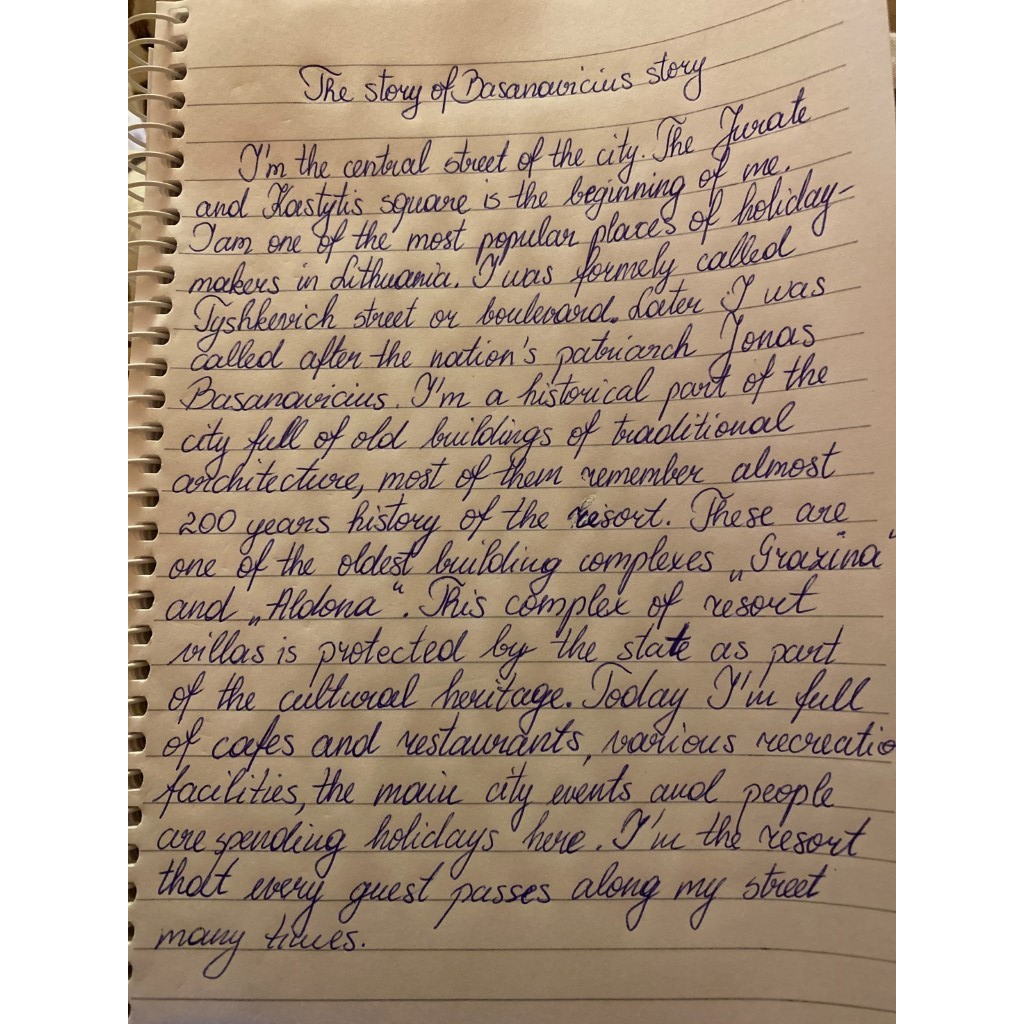 The story of Basanavicius story
I'm the central street of the city. The Jurate
and Kastytis square is the beginning of me.
I am one of the most popular places of holiday-
makers in Lithuania. I was formely called
Tyshkevich street or boulevard. Later I was
called after the nation's patriarch Jonas
Basanavicius. I'm a historical part of the
city full of old buildings of traditional
architecture, most of them remember almost
200 years history of the resort. These are
one of the oldest building complexes „Grazina“
and „Aldona“. This complex of resort
villas is protected by the state as part
of the cultural heritage. Today I'm full
of cafes and restaurants, various recreatio
facilities, the main city events and people
are spending holidays here. I'm the resort
that every guest passes along my street
many times.